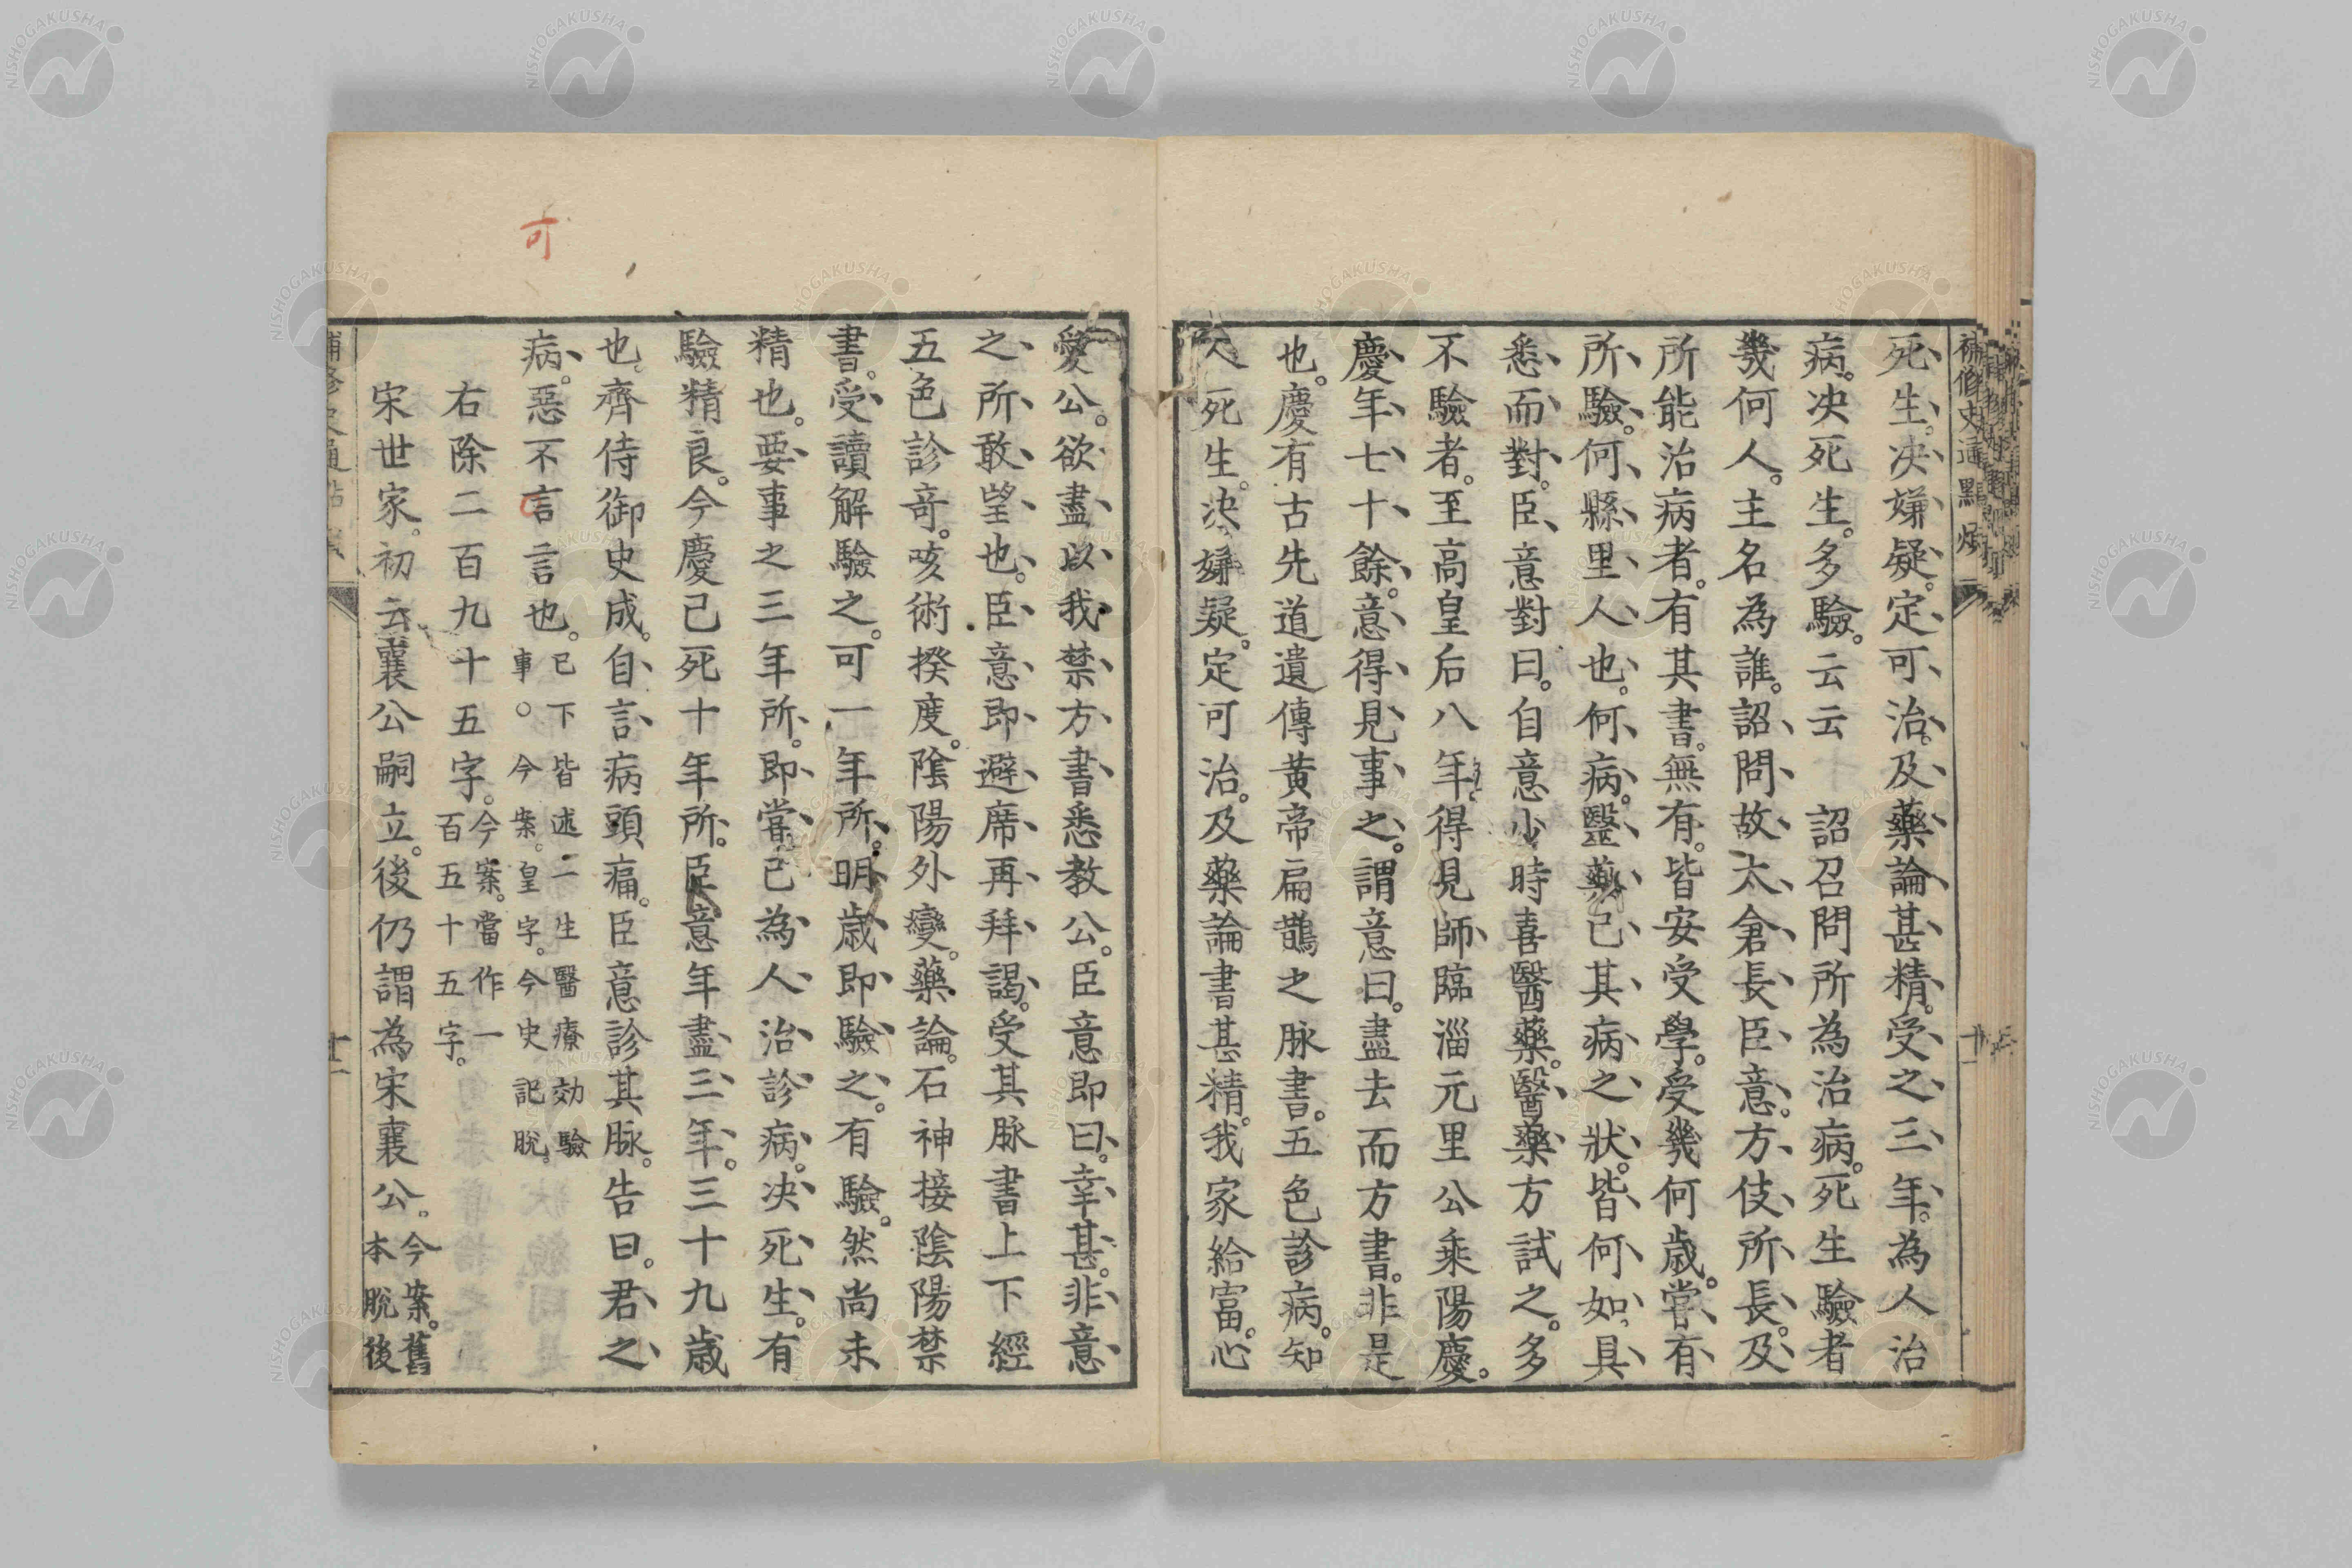 補修史通點煩
死生。决嫌疑。定可治。及藥論甚精。受之三年。為人治
病。决死生。多驗。云云 詔召問所為治病。死生驗者
幾何人。主名為誰。詔問故太倉長臣意。方伎所長。及
所能治病者。有其書。無有。皆安受學。受幾何歲。嘗有
所驗。何縣里人也。何病。醫藥已其病之狀。皆何如。具
悉而對。臣意對曰。自意少時喜醫藥。醫藥方試之。多
不驗者。至高皇后八年得見師臨淄元里公乘陽慶。
慶年七十餘。意得見事之。謂意曰。盡去而方書。非是
也。慶有古先道遺傳黃帝扁鵲之脉書。五色診病。知
人死生。决嫌疑。定可治。及藥論書甚精。我家給富。心
愛公。欲盡以我禁方書悉教公。臣意即曰。幸甚。非意
之所敢望也。臣意即避席再拜謁。受其脉書上下經
五色診奇。咳術揆度。陰陽外變。藥論。石神接陰陽禁
書。受讀解驗之。可一年所。明歲即驗之。有驗。然尚未
精也。要事之三年所。即嘗已為人治診病。决死生。有
驗精良。今慶已死十年所。臣意年盡三年。三十九歲
也。齊侍御史成。自言病頭痛。臣意診其脉。告曰。君之
病。惡不言言也。已下皆述二生醫療効驗
事。○今案。皇字。今史記脫。
右除二百九十五字。今案。當作一
百五十五字。
宋世家。初云襄公嗣立。後仍謂為宋襄公。今案。舊
本脫後
可
NISHOGAKUSHA